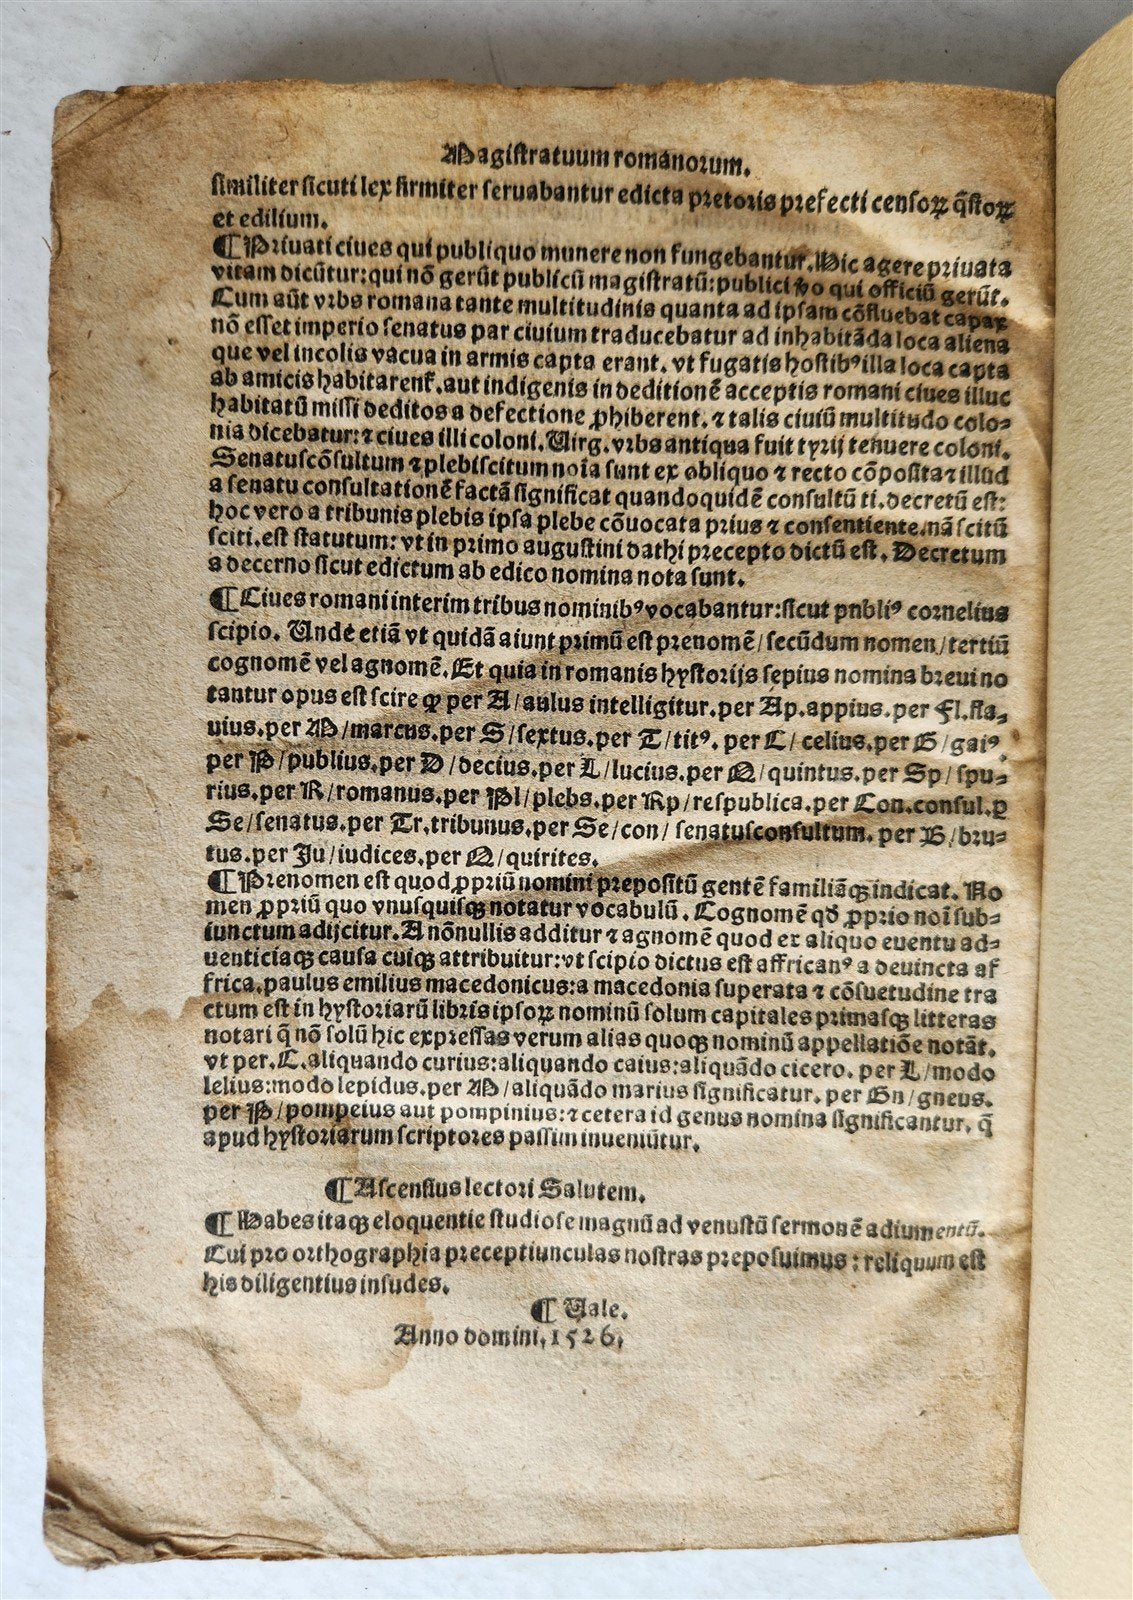 Magistratuum romanorum.
similiter sicuti lex firmiter seruabantur edicta pretoris prefecti censoꝝ q̄stoꝝ
et edilium.
¶ Priuati ciues qui publiquo munere non fungebantur. Hic agere priuata
vitam dicūtur: qui nō gerūt publicū magistratū: publici ꝟo qui officiū gerūt.
Cum aūt vrbs romana tante multitudinis quanta ad ipsam cōfluebat capax
nō esset imperio senatus par ciuium traducebatur ad inhabitāda loca aliena
que vel incolis vacua in armis capta erant. vt fugatis hostibꝰ illa loca capta
ab amicis habitarent̄. aut indigenis in deditionē acceptis romani ciues illuc
habitatū missi deditos a defectione ꝓhiberent. ⁊ talis ciuiū multitudo colo-
nia dicebatur: ⁊ ciues illi coloni. Uirg. vrbs antiqua fuit tyrij tenuere coloni.
Senatuscōsultum ⁊ plebiscitum noīa sunt ex obliquo ⁊ recto cōposita ⁊ illud
a senatu consultationē factā significat quandoquidē consultū ti. decretū est:
hoc vero a tribunis plebis ipsa plebe cōuocata prius ⁊ consentiente. nā scitū
sciti. est statutum: vt in primo augustini dathi precepto dictū est. Decretum
a decerno sicut edictum ab edico nomina nota sunt.
¶ Ciues romani interim tribus nominibꝰ vocabantur: sicut pnbliꝰ cornelius
scipio. Unde etiā vt quidā aiunt primū est prenomē / secūdum nomen / tertiū
cognomē vel agnomē. Et quia in romanis hystorijs sepius nomina breui no
tantur opus est scire ꝙ per A / aulus intelligitur. per Ap. appius. per Fl. fla-
uius. per M / marcus. per S / sextus. per T / titꝰ. per C / celius. per G / gaiꝰ
per P / publius. per D / decius. per L / lucius. per Q / quintus. per Sp / spu-
rius. per R / romanus. per Pl / plebs. per Rp / respublica. per Con. consul. ꝑ
Se / senatus. per Tr. tribunus. per Se / con / senatusconsultum. per B / bru-
tus. per Ju / iudices. per Q / quirites.
¶ Prenomen est quod ꝓpriū nomini prepositū gentē familiāqꝫ indicat. No
men ꝓpriū quo vnusquisqꝫ notatur vocabulū. Cognomē qd̄ ꝓprio noīsub-
iunctum adijcitur. A nōnullis additur ⁊ agnomē quod ex aliquo euentu ad-
uenticiaqꝫ causa cuiqꝫ attribuitur: vt scipio dictus est affricanꝰ a deuincta af
frica. paulus emilius macedonicus: a macedonia superata ⁊ cōsuetudine tra
ctum est in hystoriarū libris ipsoꝝ nominū solum capitales primasqꝫ litteras
notari q̄ nō solū hic expressas verum alias quoqꝫ nominū appellatiōe notāt.
vt per. C. aliquando curius: aliquando caius: aliquādo cicero. per L / modo
lelius: modo lepidus. per M / aliquādo marius significatur. per Gn / gneus.
per P / pompeius aut pompinius: ⁊ cetera id genus nomina significantur. q̄
apud hystoriarum scriptores passim inueniūtur.
¶ Ascensius lectori Salutem.
¶ Habes itaqꝫ eloquentie studiose magnū ad venustū sermonē adiumentū.
Cui pro orthographia preceptiunculas nostras preposuimus: reliquum est
his diligentius insudes.
¶ Uale.
Anno domini. 1526.